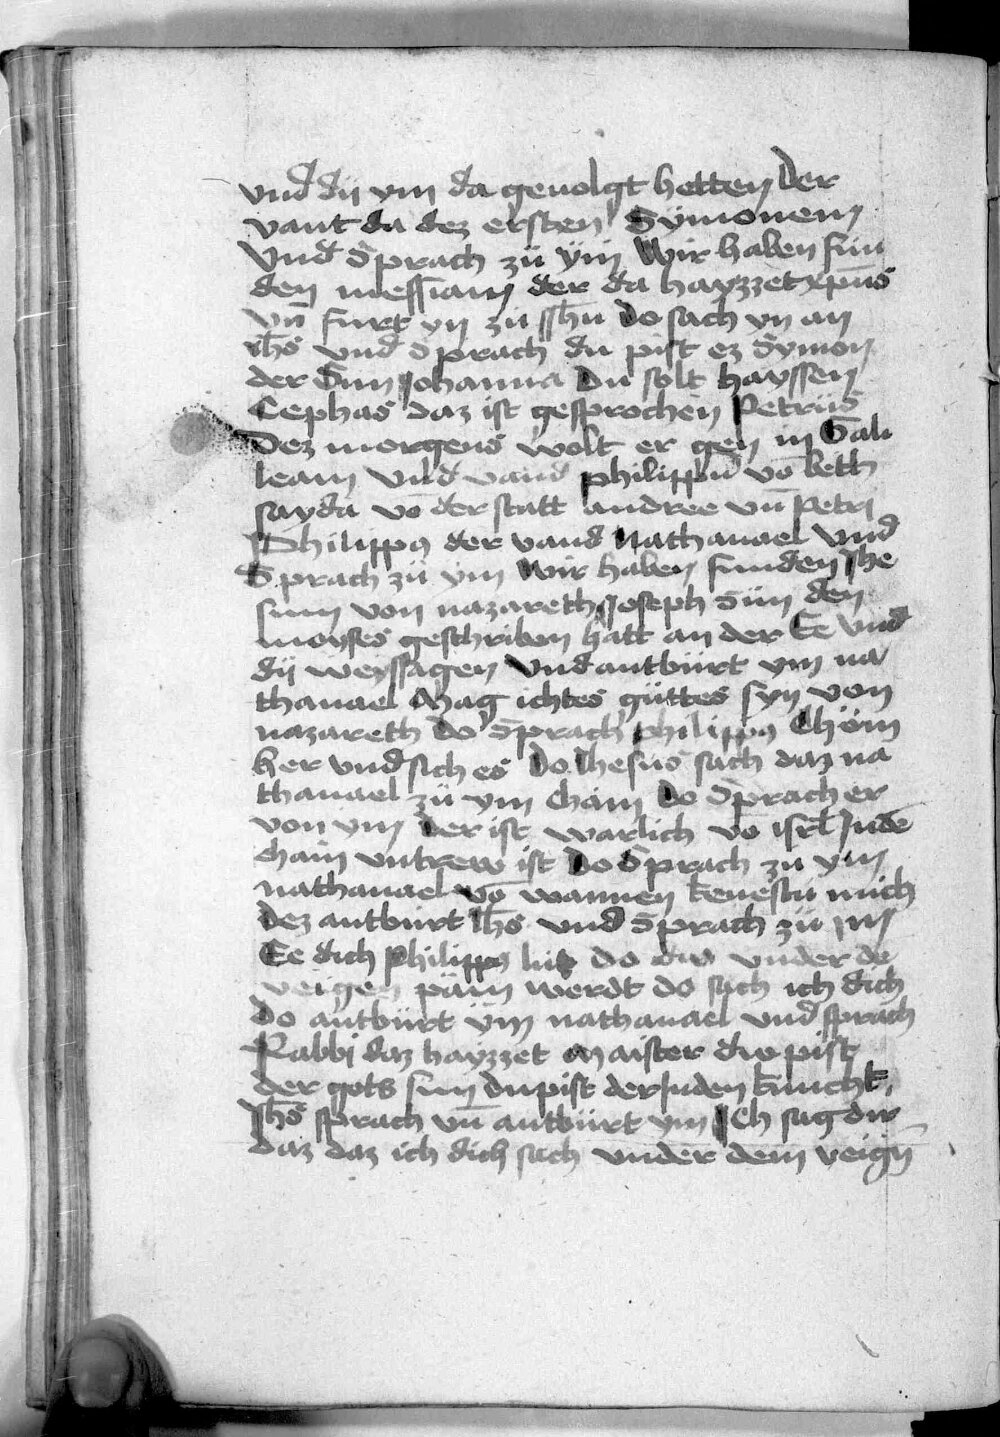 vnd dij ym da geuolgt hetten Der
vant da dez ersten Sÿmonem
Vnd Sprach zü ÿm Wir haben fün
den messiam der da hayzzet xp̄us
vn̄ furt yn zu Jh̄u Do sach yn an
Jh̄s vnd Sprach du pist ez Symon
der Sun Johanna Du solt hayssen
Cephas daz ist gesprochen Petrüs
Dez morgens wolt er gen in Gali
leam vnd vand philippū vō beth
sayda vō der statt andree vn̄ Petri
Philippꝯ der vand Nathanael vnd
Sprach zü ym Wir haben funden Jhe
sum von nazareth Joseph Sün den
moyses geschriben hatt an der Ee vnd
dij weyssagen Vnd antbürt ym na
thanael Mag ichtes güttes syn von
nazareth Do Sprach philippꝯ Chöm
her vnd sich es Do Jhesus sach daz na
thanael zü ym cham Do Sprach er
von ym Der ist warlich vō isrl̄ Jn dē
chain vntrew ist Do Sprach zu ym
nathanael vō wannen kenestu mich
dez antburt Jh̄s vnd Sprach zü ym
Ee dich Philippꝯ lüd do du vnder de
veigen päm werdt do sach ich dich
Do antbürt ÿm nathanael vnd sprach
Rabbi daz hayzzet Maister du pist
der gots sun du pist der Juden kunchk
Jh̄s sprach vn̄ antbürt ym Ich sag dir
daz daz ich dich sach vnder dem veign̄